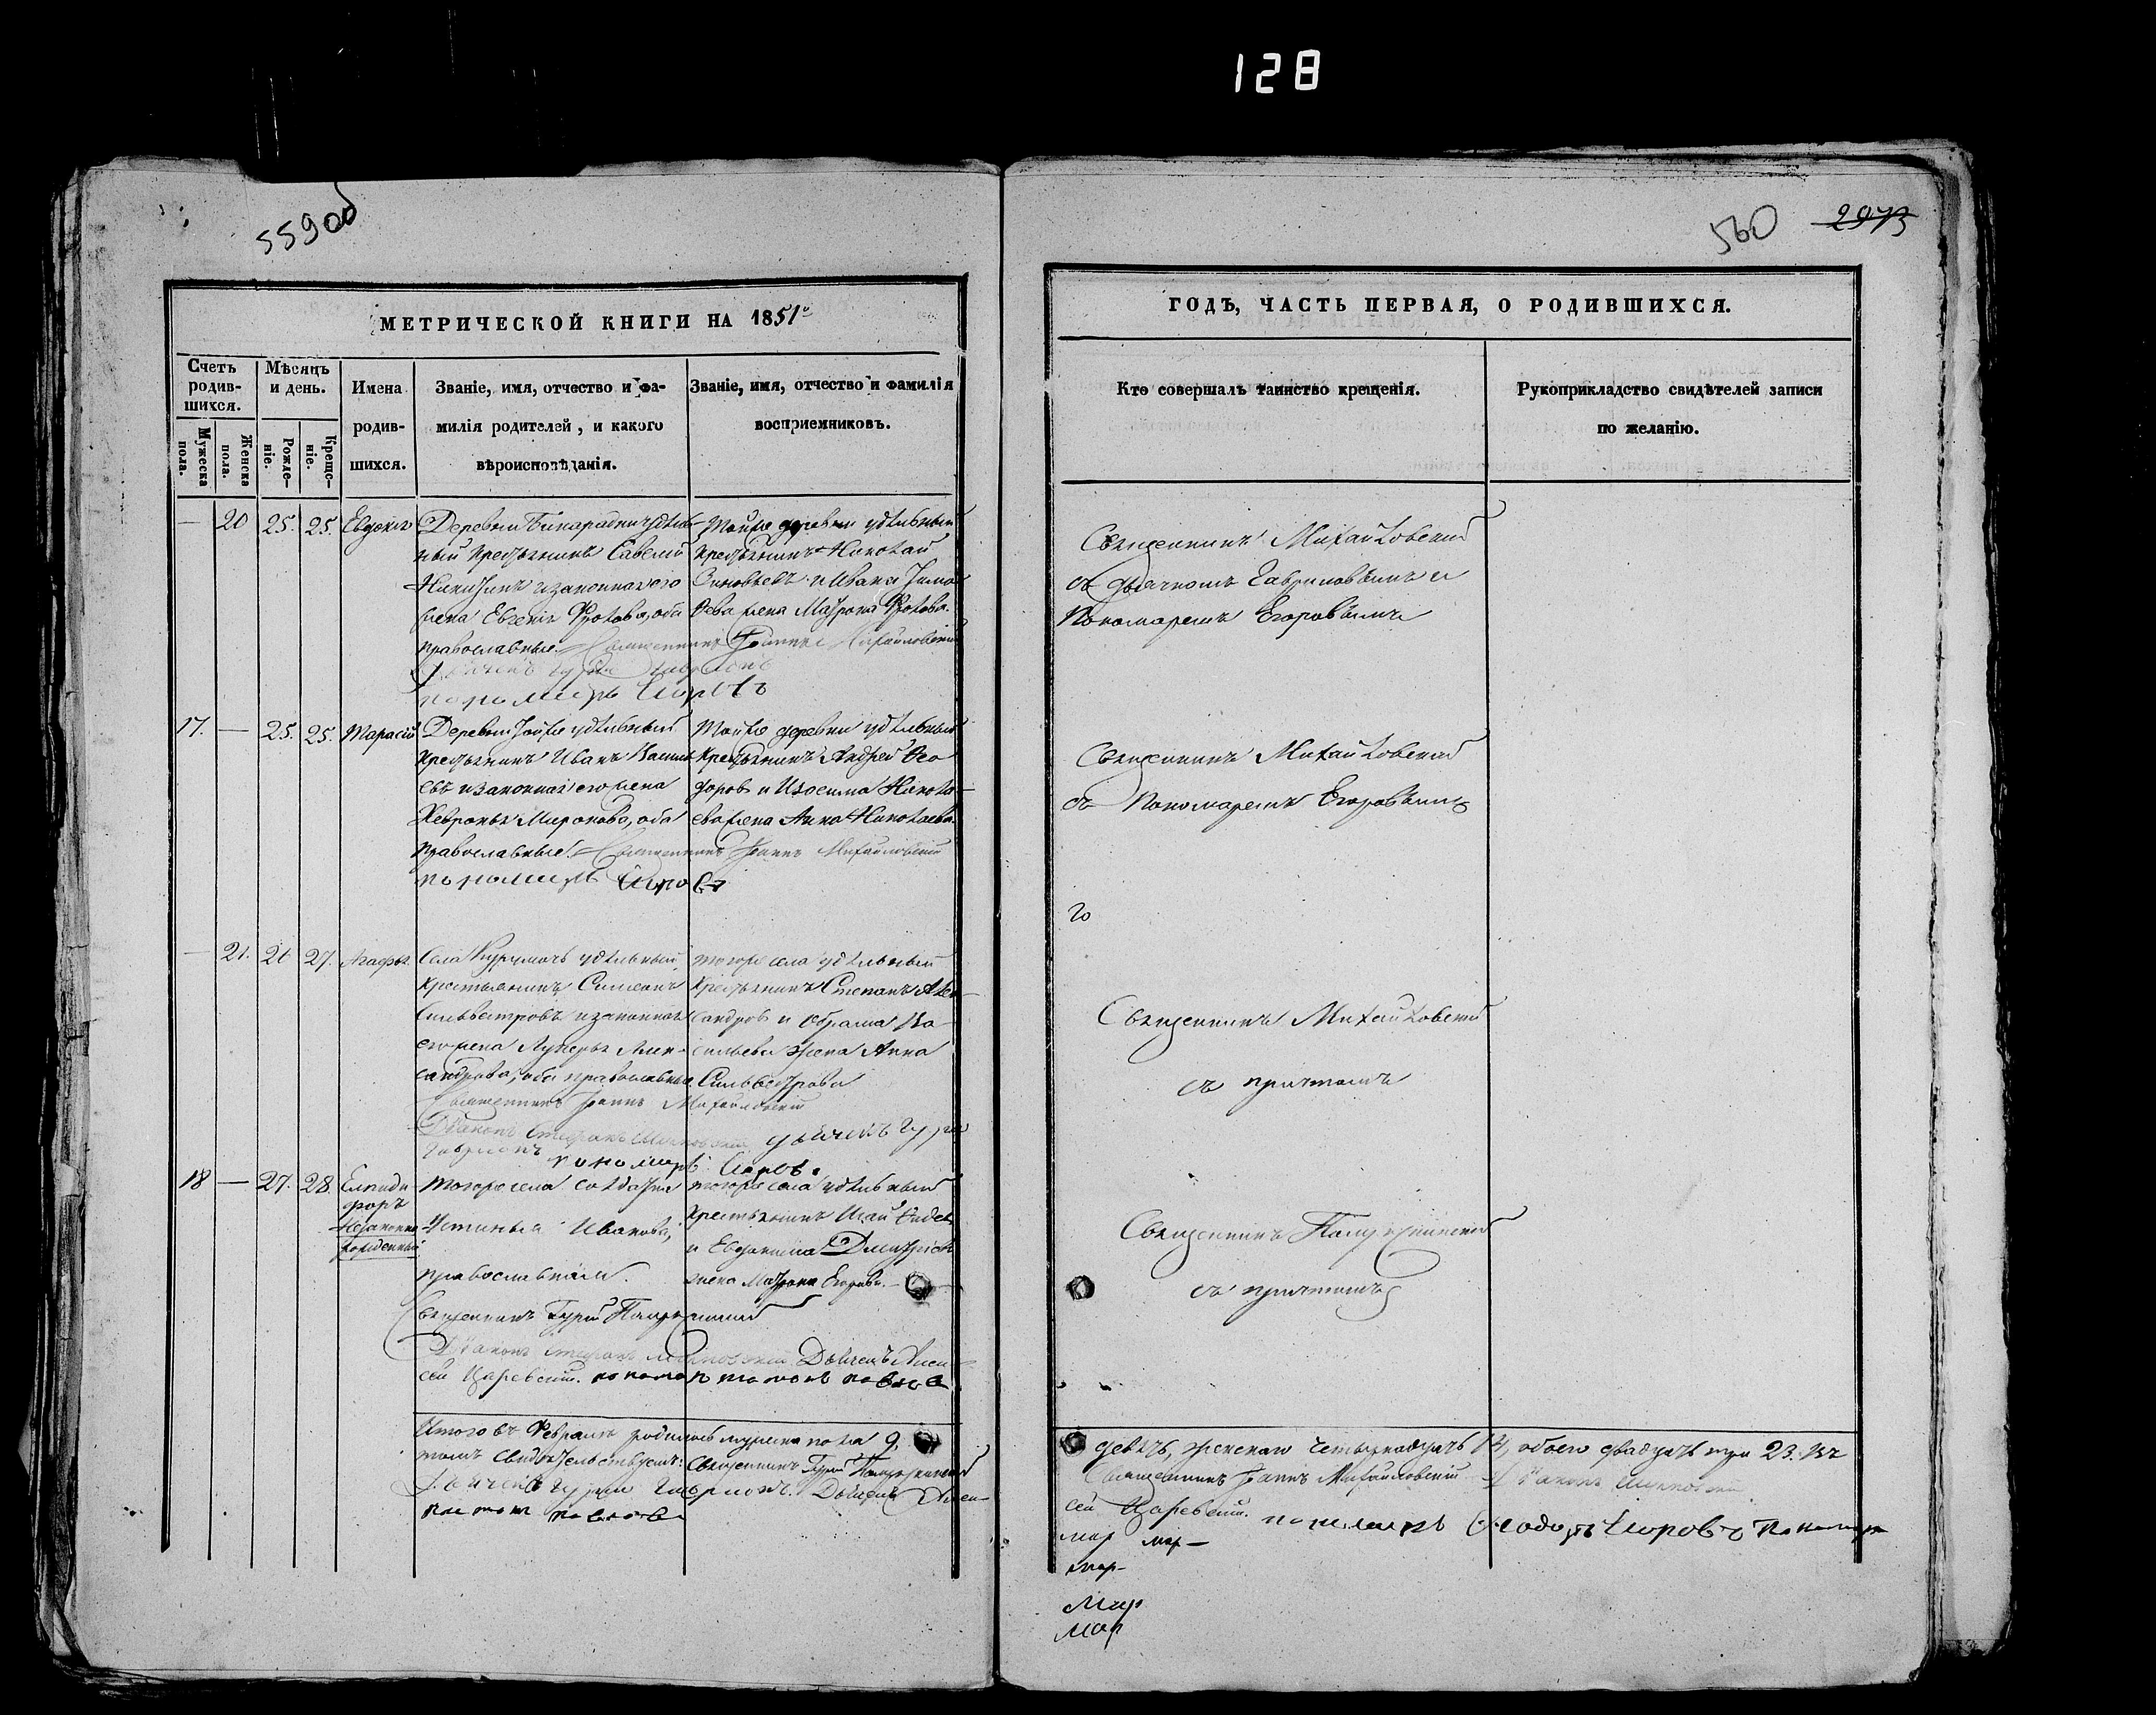 128
559об
560 2973
МЕТРИЧЕСКОЙ КНИГИ НА 1851й
ГОДЪ, ЧАСТЬ ПЕРВАЯ, О РОДИВШИХСЯ.
Счетъ родив-шихся.
Мужеска пола.
Женска пола.
Мѣсяцъ и день.
Рожде-ніе.
Креще-ніе.
Имена родив-шихся.
Званіе, имя, отчество и фа-
милія родителей, и какого
вѣроисповѣданія.
Званіе, имя, отчество и фамилія
восприемниковъ.
Кто совершалъ таинство крещенія.
Рукоприкладство свидѣтелей записи
по желанію.
— 20 25. 25. Евдокія
Деревни удѣль-
ный крестьянинъ Савелій
Никитинъ и законная его
жена Евгенія Фролова, оба
православные. Священникъ Іоаннъ Михайловскій
Дьячекъ Гурій Гавриловъ
пономарь Егоровъ
Той же деревни удѣльный
крестьянинъ Николай
Зиновьевъ и Ивана
жена Матрона Фролова.
Священникъ Михайловскій
съ дьячкомъ Гавриловымъ и
Пономаремъ Егоровымъ
17. — 25. 25. Тарасій
Деревни той же удѣльный
крестьянинъ Иванъ Василь
евъ и законная его жена
Февронья Миронова, оба
православные. Священникъ Іоаннъ Михайловскій
пономарь Егоровъ
Той же деревни удѣльный
крестьянинъ Андрей Ѳео
доровъ и Изосима Никола-
ева жена Анна Николаева.
Священникъ Михайловскій
съ Пономаремъ Егоровымъ
— 21. 26 27. Агафья.
Села Курумочь удѣльный
крестьянинъ Симеонъ
Сильвестровъ и законная
его жена Лукерья Алек-
сандрова, оба православные
Священникъ Іоаннъ Михайловскій
Діаконъ Стефанъ дьячекъ Гурій
Гавриловъ пономарь Егоровъ.
того же села удѣльный
крестьянинъ Степанъ Алек-
сандровъ и Абрама Ва-
сильева жена Анна
Сильвестрова
Священникъ Михайловскій
съ причтомъ
18 — 27. 28. Елпиди
форъ
незаконно
рожденный
Того же села солдатка
Устинья Иванова,
православная.
Священникъ Гурій
Діаконъ Стефанъ Дьячекъ Алек
сѣй Царевскій.
того же села удѣльный
крестьянинъ
и Евдокима Дмитріева
жена Матрона Егорова.
Священникъ
съ причтомъ
Итого въ Февралѣ родилось мужеска пола 9,
девять, женскаго четырнадцать 14, обоего двадцать три 23. Въ
томъ свидѣтельствуемъ: Священникъ Гурій
Священникъ Іоаннъ Михайловскій Діаконъ
Дьячекъ Гурій Гавриловъ. Дьячекъ Алек-
сѣй Царевскій. пономарь Ѳеодоръ Егоровъ Пономарь
мар мар—
мар—
Мар
Мар